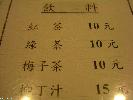 飲 料
紅 茶 10 元
綠 茶 10 元
梅子茶 10 元
柳丁汁 15 元